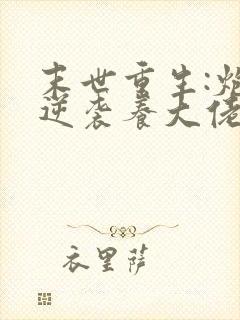 末世重生:炮
逆袭养大佬
衣里萨